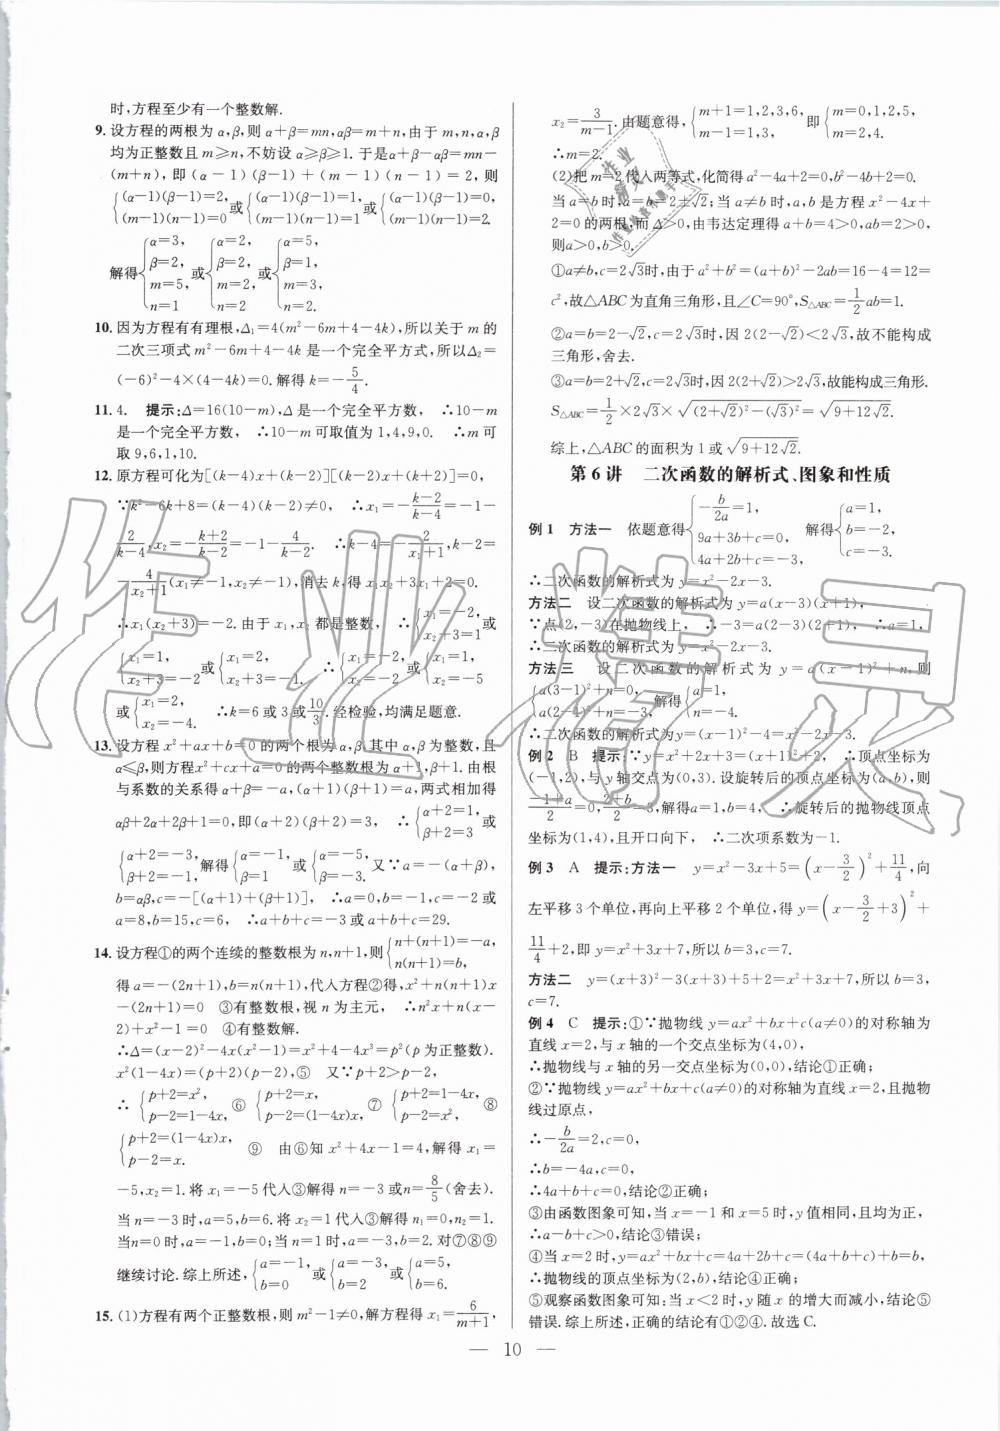 时,方程至少有一个整数解.
9. 设方程的两根为 α,β,则 α+β=mn,αβ=m+n,由于 m,n,α,β
均为正整数且 m≥n,不妨设 α≥β≥1. 于是α+β-αβ=mn-
(m+n), 即 (α-1)(β-1)+(m-1)(n-1)=2, 则
{(α-1)(β-1)=2, (m-1)(n-1)=0 或 {(α-1)(β-1)=1, (m-1)(n-1)=1 或 {(α-1)(β-1)=0, (m-1)(n-1)=2.
解得 {α=3, β=2, m=5, n=1 或 {α=2, β=2, m=2, n=2 或 {α=5, β=1, m=3, n=2
10. 因为方程有有理根,Δ₁=4(m²-6m+4-4k),所以关于 m 的
二次三项式 m²-6m+4-4k 是一个完全平方式,所以Δ₂=
(-6)²-4×(4-4k)=0. 解得 k=-5/4.
11. 4. 提示:Δ=16(10-m),Δ 是一个完全平方数, ∴10-m
是一个完全平方数, ∴10-m 可取值为 1,4,9,0. ∴m 可
取 9,6,1,10.
12. 原方程可化为[(k-4)x+(k-2)][(k-2)x+(k+2)]=0,
∵k²-6k+8=(k-4)(k-2)≠0, ∴x₁=-(k-2)/(k-4)=-1-
2/(k-4),x₂=-(k+2)/(k-2)=-1-4/(k-2). ∴k-4=-2/(x₁+1),k-2=
-4/(x₂+1)(x₁≠-1,x₂≠-1),消去 k,得 x₁x₂+3x₁+2=0.
∴x₁(x₂+3)=-2. 由于 x₁,x₂ 都是整数, ∴{x₁=-2, x₂+3=1
或{x₁=1, x₂+3=-2 或{x₁=2, x₂+3=-1. ∴{x₁=-2, x₂=-2 或{x₁=1, x₂=-5
或{x₁=2, x₂=-4. ∴k=6 或 3 或 10/3. 经检验,均满足题意.
13. 设方程 x²+ax+b=0 的两个根为 α,β,其中 α,β 为整数,且
α≤β,则方程 x²+cx+a=0 的两个整数根为 α+1,β+1. 由根
与系数的关系得 α+β=-a,(α+1)(β+1)=a,两式相加得
αβ+2α+2β+1=0,即(α+2)(β+2)=3, ∴{α+2=1, β+2=3 或
{α+2=-3, β+2=-1, 解得{α=-1, β=1 或{α=-5, β=-3. 又∵a=-(α+β),
b=αβ,c=-[(α+1)+(β+1)], ∴a=0,b=-1,c=-2 或
a=8,b=15,c=6, ∴a+b+c=-3 或 a+b+c=29.
14. 设方程①的两个连续的整数根为 n,n+1,则{n+(n+1)=-a, n(n+1)=b,
得 a=-(2n+1),b=n(n+1),代入方程②得,x²+n(n+1)x
-(2n+1)=0 ③有整数根,视 n 为主元, ∴n²x+n(x-
2)+x²-1=0 ④有整数解.
∴Δ=(x-2)²-4x(x²-1)=x²+4-4x³=p²(p 为正整数).
x²(1-4x)=(p+2)(p-2),⑤ 又∵p+2>p-2,
∴{p+2=x², p-2=1-4x, ⑥ {p+2=x, p-2=(1-4x)x, ⑦ {p+2=1-4x, p-2=x², ⑧
{p+2=(1-4x)x, p-2=x. ⑨ 由⑥知 x²+4x-1=4, 解得 x₁=
-5,x₂=1. 将 x₁=-5 代入③解得 n=-3 或n=8/5(舍去).
当 n=-3 时,a=5,b=6. 将 x₂=1 代入③解得 n₁=0,n₂=1.
当n=0 时,a=-1,b=0;当 n=1 时,a=-3,b=2. 对⑦⑧⑨
继续讨论. 综上所述,{a=-1, b=0 或{a=-3, b=2 或{a=5, b=6.
15. (1)方程有两个正整数根,则 m²-1≠0,解方程得 x₁=6/(m+1),
x₂=3/(m-1). 由题意得,{m+1=1,2,3,6, m-1=1,3, 即{m=0,1,2,5, m=2,4.
∴m=2.
(2)把 m=2 代入两等式,化简得 a²-4a+2=0,b²-4b+2=0.
当 a=b 时,a=b=2±√2;当 a≠b 时,a,b 是方程 x²-4x+
2=0 的两根,而 Δ>0,由韦达定理得 a+b=4>0,ab=2>0,
则a>0,b>0.
①a≠b,c=2√3时,由于 a²+b²=(a+b)²-2ab=16-4=12=
c²,故△ABC 为直角三角形,且∠C=90°,S△ABC=1/2ab=1.
②a=b=2-√2,c=2√3时,因 2(2-√2)<2√3,故不能构成
三角形,舍去.
③a=b=2+√2,c=2√3时,因 2(2+√2)>2√3,故能构成三角形.
S△ABC=1/2×2√3×√((2+√2)²-(√3)²)=√(9+12√2).
综上,△ABC 的面积为 1 或√(9+12√2).
第 6 讲 二次函数的解析式、图象和性质
例 1 方法一 依题意得{-b/2a=1, 9a+3b+c=0, 4a+2b+c=-3, 解得{a=1, b=-2, c=-3.
∴二次函数的解析式为 y=x²-2x-3.
方法二 设二次函数的解析式为 y=a(x-3)(x+1),
∵点(2,-3)在抛物线上, ∴-3=a(2-3)(2+1), ∴a=1,
∴二次函数的解析式为 y=x²-2x-3.
方法三 设二次函数的解析式为 y=a(x-1)²+n, 则
{a(3-1)²+n=0, a(2-1)²+n=-3, 解得{a=1, n=-4.
∴二次函数的解析式为 y=(x-1)²-4=x²-2x-3.
例 2 B 提示:∵y=x²+2x+3=(x+1)²+2, ∴顶点坐标为
(-1,2),与 y 轴交点为(0,3). 设旋转后的顶点坐标为(a,b),则
(-1+a)/2=0,(2+b)/2=3,解得a=1,b=4, ∴旋转后的抛物线顶点
坐标为(1,4),且开口向下, ∴二次项系数为-1.
例 3 A 提示:方法一 y=x²-3x+5=(x-3/2)²+11/4,向
左平移 3 个单位,再向上平移 2 个单位,得 y=(x-3/2+3)²+
11/4+2,即 y=x²+3x+7,所以 b=3,c=7.
方法二 y=(x+3)²-3(x+3)+5+2=x²+3x+7,所以 b=3,
c=7.
例 4 C 提示:①∵抛物线 y=ax²+bx+c(a≠0)的对称轴为
直线 x=2,与 x 轴的一个交点坐标为(4,0),
∴抛物线与 x 轴的另一个交点坐标为(0,0),结论①正确;
②∵抛物线 y=ax²+bx+c(a≠0)的对称轴为直线 x=2,且抛物
线过原点,
∴-b/2a=2,c=0,
∴b=-4a,c=0,
∴4a+b+c=0,结论②正确;
③由函数图象可知,当 x=-1 和 x=5 时,y 值相同,且均为正,
∴a-b+c>0,结论③错误;
④当 x=2 时,y=ax²+bx+c=4a+2b+c=(4a+b+c)+b=b,
∴抛物线的顶点坐标为(2,b),结论④正确;
⑤观察函数图象可知:当 x<2 时,y 随 x 的增大而减小,结论⑤
错误. 综上所述,正确的结论有①②④. 故选 C.
— 10 —
作业精灵